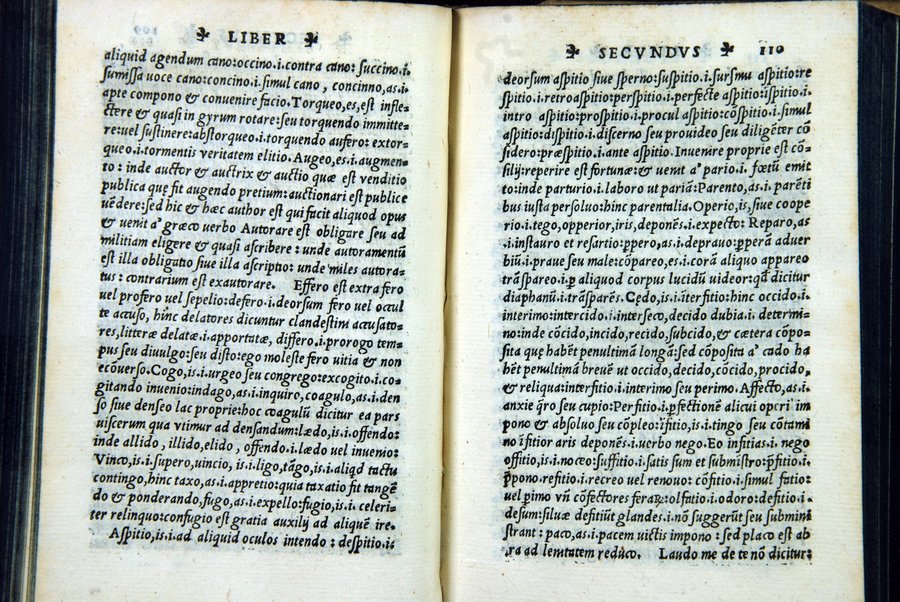 LIBER
aliquid agendum cano:occino.i.contra cano: succino.i.
sumissa uoce cano:concino.i.simul cano, concinno,as.i.
apte compono & conuenire facio.Torqueo,es,est infle-
ctere & quasi in gyrum rotare:seu torquendo immitte-
re:uel sustinere:abstorqueo.i.torquendo aufero: extor-
queo.i.tormentis veritatem elitio. Augeo,es.i.augmen-
to: inde auctor & auctrix & auctio quæ est venditio
publica quę fit augendo pretium:auctionari est publice
uēdere:sed hic & hæc author est qui facit aliquod opus
& uenit a᾽ græco uerbo Autorare est obligare seu ad
militiam eligere & quasi ascribere: unde autoramentū
est illa obligatio siue illa ascriptio: unde miles autora-
tus: contrarium est exautorare. Effero est extra fero
uel profero uel sepelio:defero.i.deorsum fero uel occul
te accuso, hinc delatores dicuntur clandestini accusato-
res,litteræ delatæ.i.apportatæ, differo.i.prorogo tem-
pus seu diuulgo: seu disto:ego moleste fero uitia & non
ecōuerso.Cogo,is.i.urgeo seu congrego:excogito.i.co-
gitando inuenio:indago,as.i.inquiro, coagulo,as.i.den
so siue denseo lac proprie:hoc coagulū dicitur ea pars
uiscerum qua vtimur ad densandum:lædo,is.i.offendo:
inde allido, illido,elido, offendo.i.lædo uel inuenio:
Vinco,is.i.supero, uincio, is.i.ligo,tāgo,is.i.aliqd tactu
contingo,hinc taxo,as.i.appretio:quia taxatio fit tangē
do & ponderando,fugo,as.i.expello:fugio,is.i.celeri-
ter relinquo:confugio est gratia auxilij ad aliquē ire.
Aspitio,is.i.ad aliquid oculos intendo: despitio.is
SECVNDVS 110
deorsum aspitio siue sperno:suspitio.i.sursmu aspitio:re
spitio.i.retroaspitio:perspitio.i.perfecte aspitio:ispitio.i.
intro aspitio:prospitio.i.procul aspitio:cōspitio.i.simul
aspitio:dispitio.i.discerno seu prouideo seu diligēter cō
sidero:præspitio.i.ante aspitio.Inuenire proprie est cō-
silij:reperire est fortunæ:& uenit a᾽ pario.i. fœtū emit
to:inde parturio.i.laboro ut pariā:Parento,as.i.parēti
bus iusta persoluo:hinc parentalia.Operio,is,siue coope
rio.i.tego,opperior,iris,deponēs.i.expecto: Reparo,as
.i.instauro et resartio:ꝑpero,as.i.deprauo:ꝑperā aduer
biū.i.praue seu male:cōpareo,es.i.corā aliquo appareo
trāspareo.i.ꝑ aliquod corpus lucidū uideor:qđ dicitur
diaphanū.i.trāsparēs.Cędo,is.i.īterfitio:hinc occido.i.
interimo:intercido.i.interseco,decido dubia.i. determi-
no:inde cōcido,incido,recido,subcido,& cætera cōpo-
sita quę habēt penultimā longā:sed cōposita a᾽ cado ha
bēt penultimā breuē ut occido,decido,cōcido, procido,
& reliqua:interfitio.i.interimo seu perimo.Affecto,as.i.
anxie q̄ro seu cupio:Perfitio.i.ꝑfectionē alicui operi im
pono & absoluo seu cōpleo:īfitio,is.i.tingo seu cōtami
no īfitior aris deponēs.i.uerbo nego.Eo infitias.i. nego
offitio,is.i.noceo:suffitio.i.satis sum et submistro:p̄fitio.i.
p̄pono.refitio.i.recreo uel renouo: cōfitio.i. simul fatio:
uel ꝑimo vn̄ cōfectores feraꝝ:olfatio.i.odoro:defitio.i.
desum:siluæ defitiūt glandes.i.nō suggerūt seu submini
strant: paco,as.i.pacem uictis impono: sed placo est ab
ira ad lenitatem reduco. Laudo me de te nō dicitur: